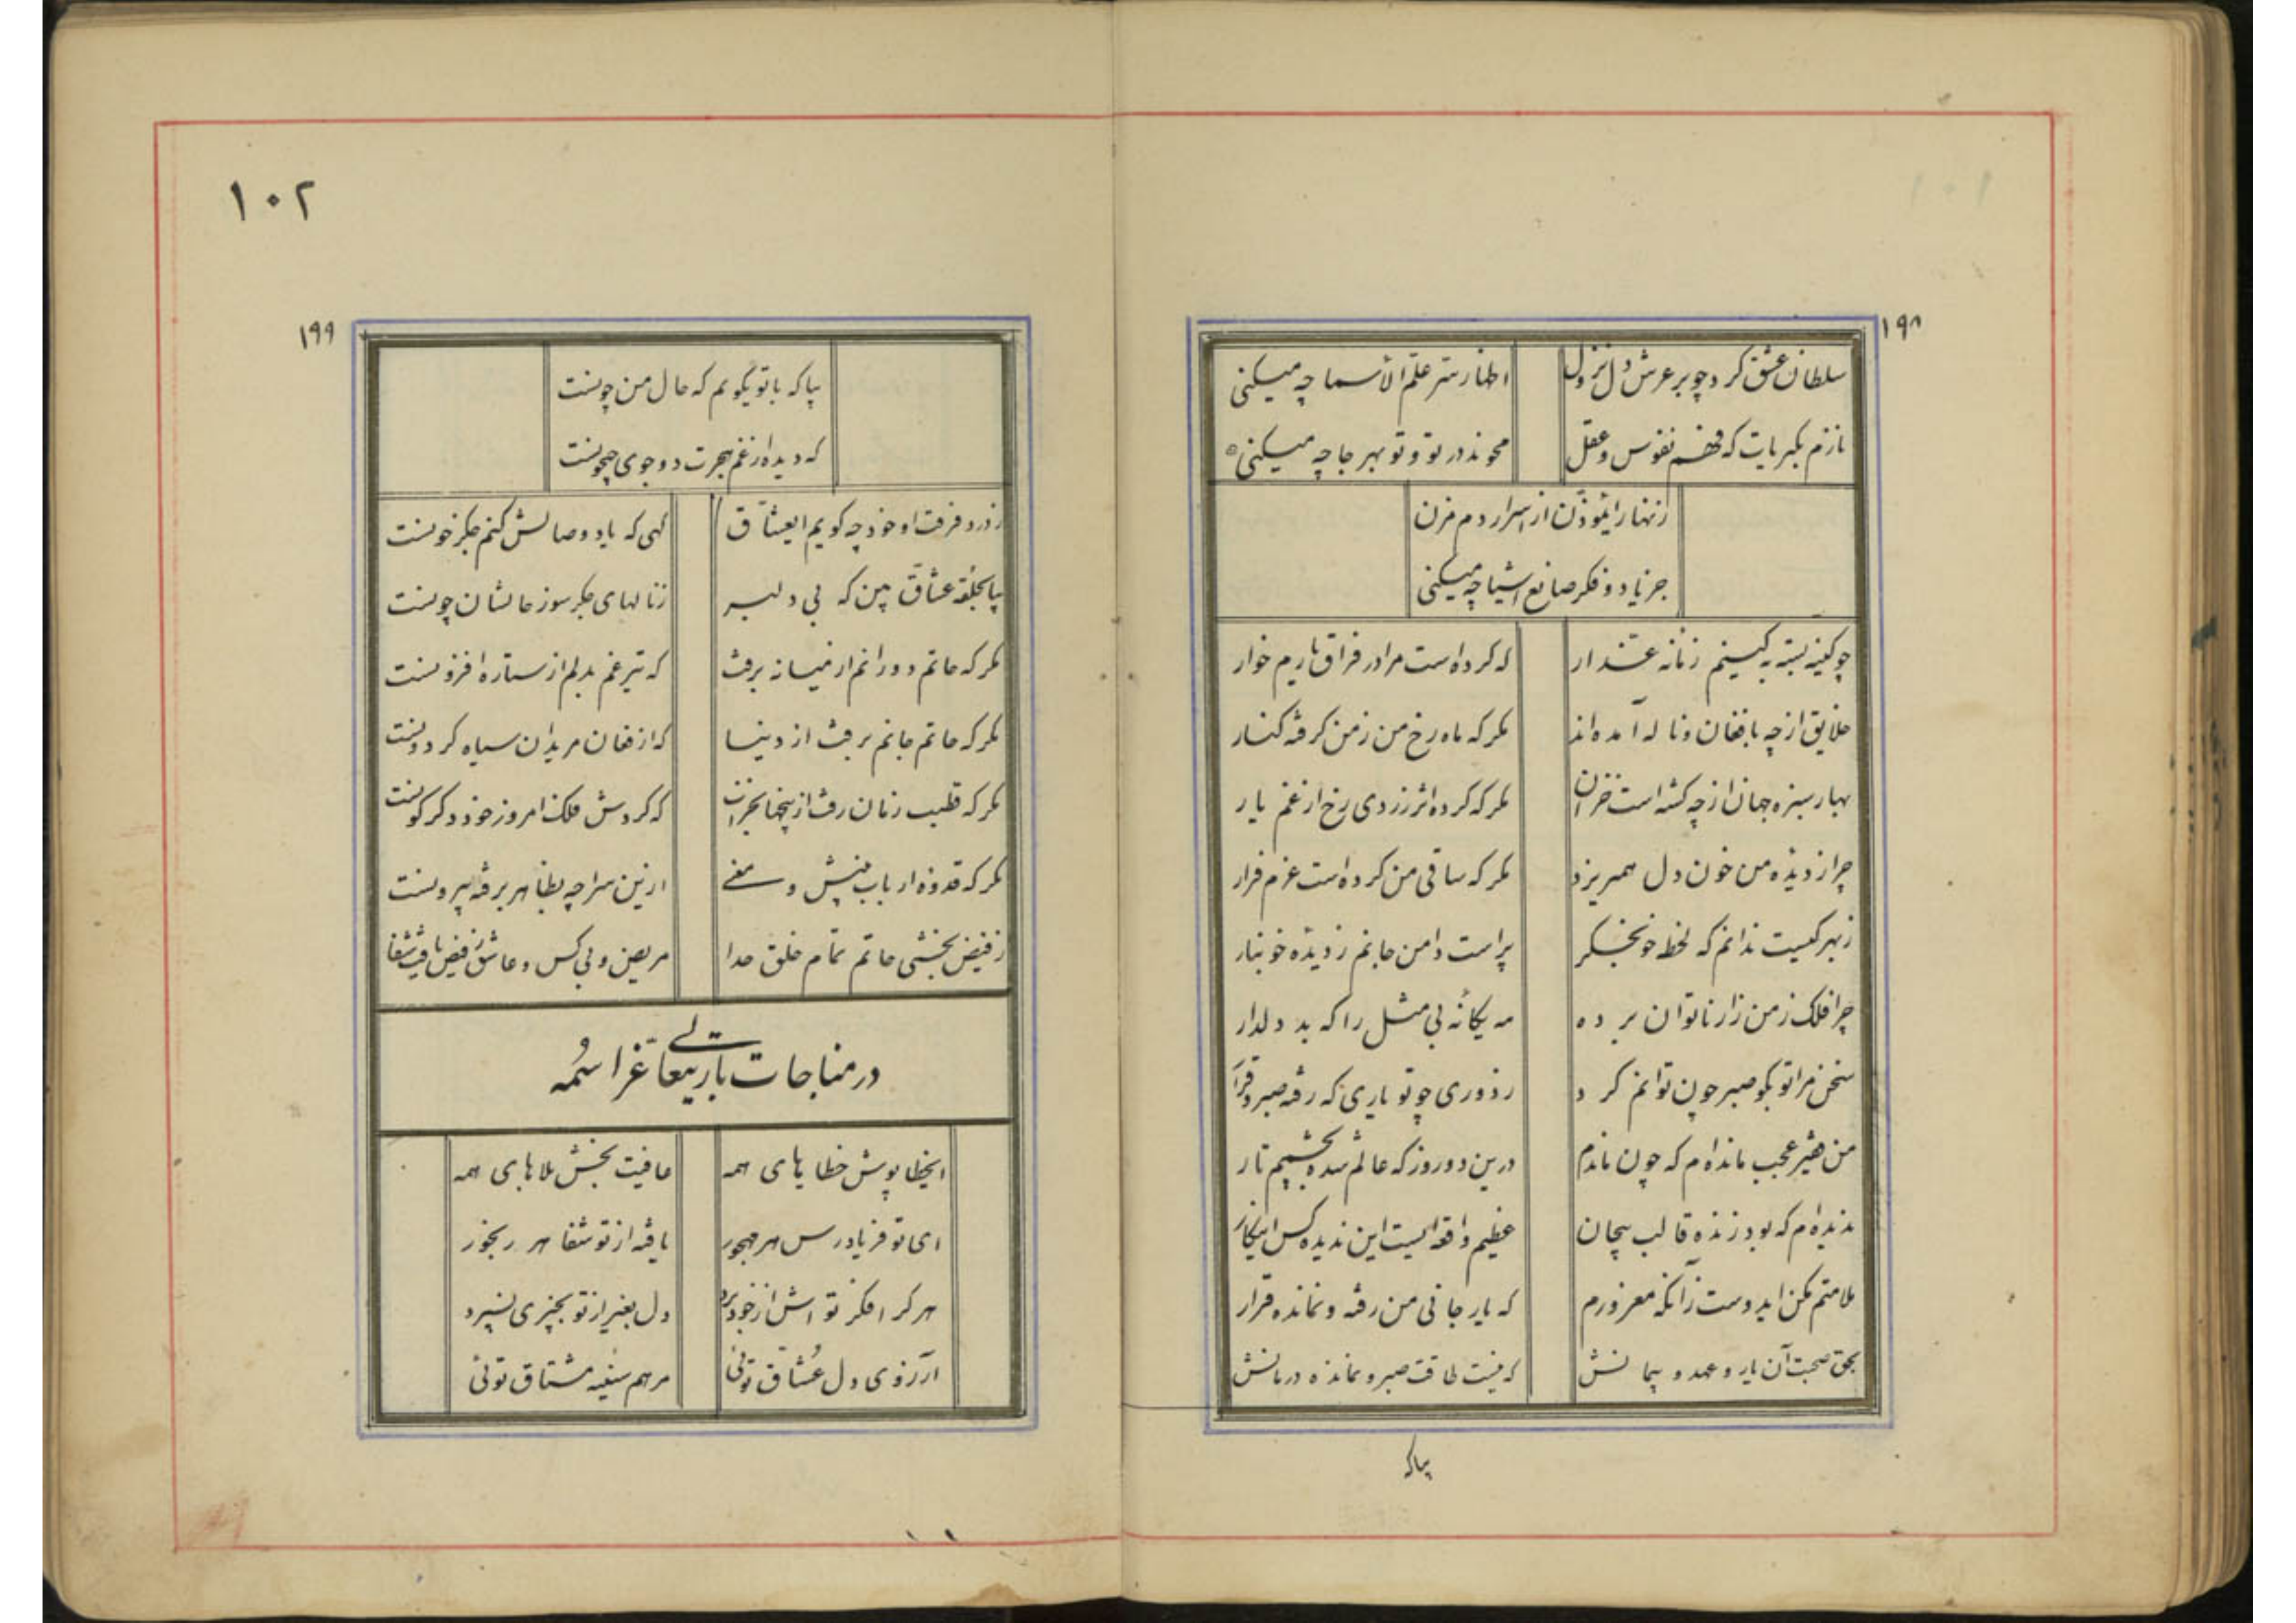 ۱۹۸
سلطان عشق کرد چو بر عرش دل نزول اظهار سر علم الاسما چه میکنی
نازم بکبریات که فهم نفوس و عقل محوند در تو و تو بهر جا چه میکنی
زنهار ایمؤذن از اسرار دم مزن
جز یاد و فکر صانع اشیا چه میکنی
چو کینه بسته به کینم زمانه غدار که کرده است مرا در فراق یارم خوار
خلایق از چه بافغان و ناله آمده‌اند مکر که ماه رخ من ز من کرفته کنار
بهار سبزه جهان از چه کشته است خزان مکر که کرده اثر زردی رخ از غم یار
چرا ز دیده من خون دل همریزد مکر که ساقی من کرده است عزم فرار
ز بهر کیست ندانم که لخط خونجکر پر است دامن جانم ز دیده خونبار
چرا فلک ز من زار ناتوان برده مه یکانه بی مثل را که بد دلدار
سخن مرا تو بکو صبر چون توانم کرد ز دوری چو تو یاری که رفته صبر و قرار
من فقیر عجب مانده‌ام که چون ماندم درین دو روز که عالم شده بچشمم تار
ندیده‌ام که بود زنده قالب بیجان عظیم واقعه ایست این ندیده کس اینکار
ملامتم مکن ایدوست زآنکه معذورم که یار جانی من رفته و نمانده قرار
بحق صحبت آن یار و عهد و پیمانش که نیست طاقت صبر و نمانده درمانش
بیا که
۱۰۲
۱۹۹
بیا که با تو بگویم که حال من چونست
که دیده‌ از غم هجرت دو جوی جیحونست
ز درد فرقت او خود چه کویم ایعشاق کهی که یاد وصالش کنم جکر خونست
بیا بحلقه عشاق بین که بی دلبر ز نالهای جکر سوز حالشان چونست
مکر که حاتم دورانم از میانه برفت که تیر غم بدلم از ستاره افزونست
مکر که حاتم جانم برفت از دنیا که از فغان مریدان سیاه کردونست
مکر که قطب زمان رفت از که کردش فلک امروز خود دکرکونست
مکر که قدوه ارباب بینش و معنی ازین سراچه بظاهر برفته بیرونست
ز فیض بخشی حاتم تمام خلق خدا مریض و بی کس و عاشق ز فیض یافت شفا
در مناجات باریتعالی عز اسمه
ایخطا پوش خطایای همه عافیت بخش بلاهای همه
ای تو فریادرس هر مهجور یافته از تو شفا هر رنجور
هر کرا فکر تو اش از خود برد دل بغیر از تو بچیزی نسپرد
آرزوی دل عشاق توئی مرهم سینه مشتاق توئی